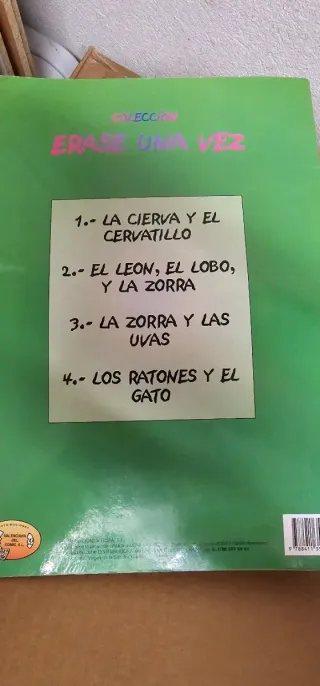 COLECCION
ERASE UNA VEZ
1.- LA CIERVA Y EL
CERVATILLO
2.- EL LEON, EL LOBO,
Y LA ZORRA
3.- LA ZORRA Y LAS
UVAS
4.- LOS RATONES Y EL
GATO